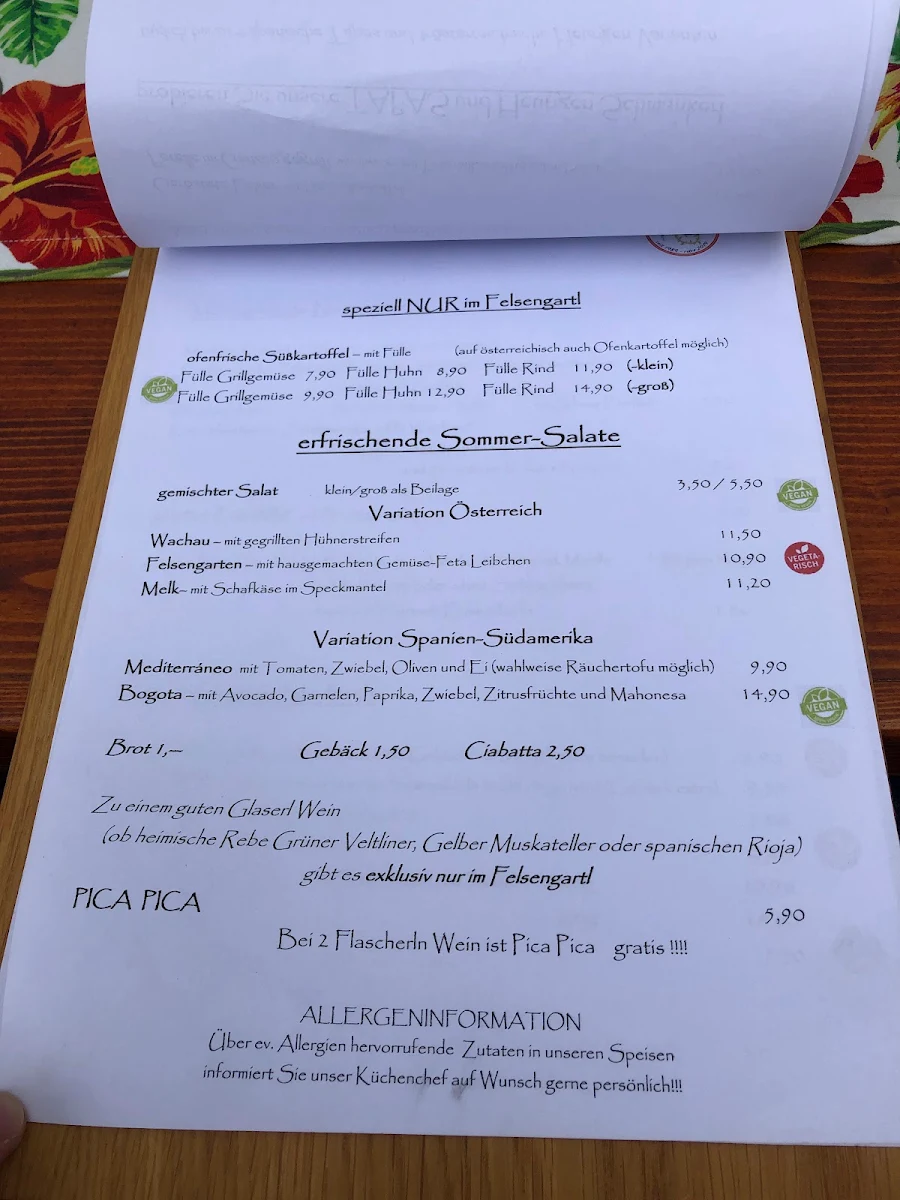 speziell NUR im Felsengartl
ofenfrische Süßkartoffel – mit Fülle (auf österreichisch auch Ofenkartoffel möglich)
Fülle Grillgemüse 7,90 Fülle Huhn 8,90 Fülle Rind 11,90 (-klein)
VEGAN Fülle Grillgemüse 9,90 Fülle Huhn 12,90 Fülle Rind 14,90 (-groß)
erfrischende Sommer-Salate
gemischter Salat klein/groß als Beilage 3,50 / 5,50 VEGAN
Variation Österreich
Wachau – mit gegrillten Hühnerstreifen 11,50
Felsengarten – mit hausgemachten Gemüse-Feta Leibchen 10,90 VEGETA-
RISCH
Melk– mit Schafkäse im Speckmantel 11,20
Variation Spanien-Südamerika
Mediterráneo mit Tomaten, Zwiebel, Oliven und Ei (wahlweise Räuchertofu möglich) 9,90
Bogota – mit Avocado, Garnelen, Paprika, Zwiebel, Zitrusfrüchte und Mahonesa 14,90 VEGAN
Brot 1,-- Gebäck 1,50 Ciabatta 2,50
Zu einem guten Glaserl Wein
(ob heimische Rebe Grüner Veltliner, Gelber Muskateller oder spanischen Rioja)
gibt es exklusiv nur im Felsengartl
PICA PICA 5,90
Bei 2 Flascherln Wein ist Pica Pica gratis !!!!
ALLERGENINFORMATION
Über ev. Allergien hervorrufende Zutaten in unseren Speisen
informiert Sie unser Küchenchef auf Wunsch gerne persönlich!!!